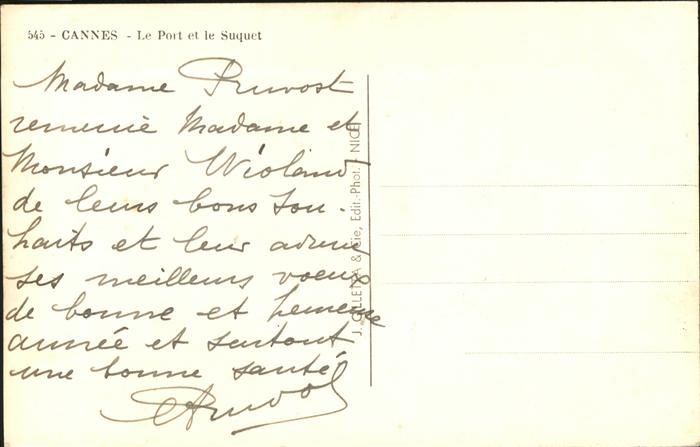 545 - CANNES - Le Port et le Suquet
Madame Pruvost
remercie Madame et
Monsieur Wioland
de leurs bons sou-
haits et leur adresse
ses meilleurs voeux
de bonne et heureuse
année et surtout
une bonne santé
Pruvost
J. GILLETTA & Cie, Edit.-Phot. NICE